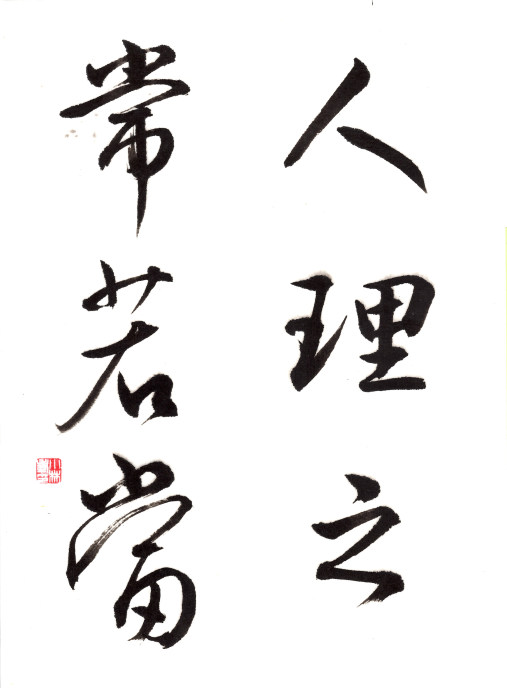 人理之
常若當